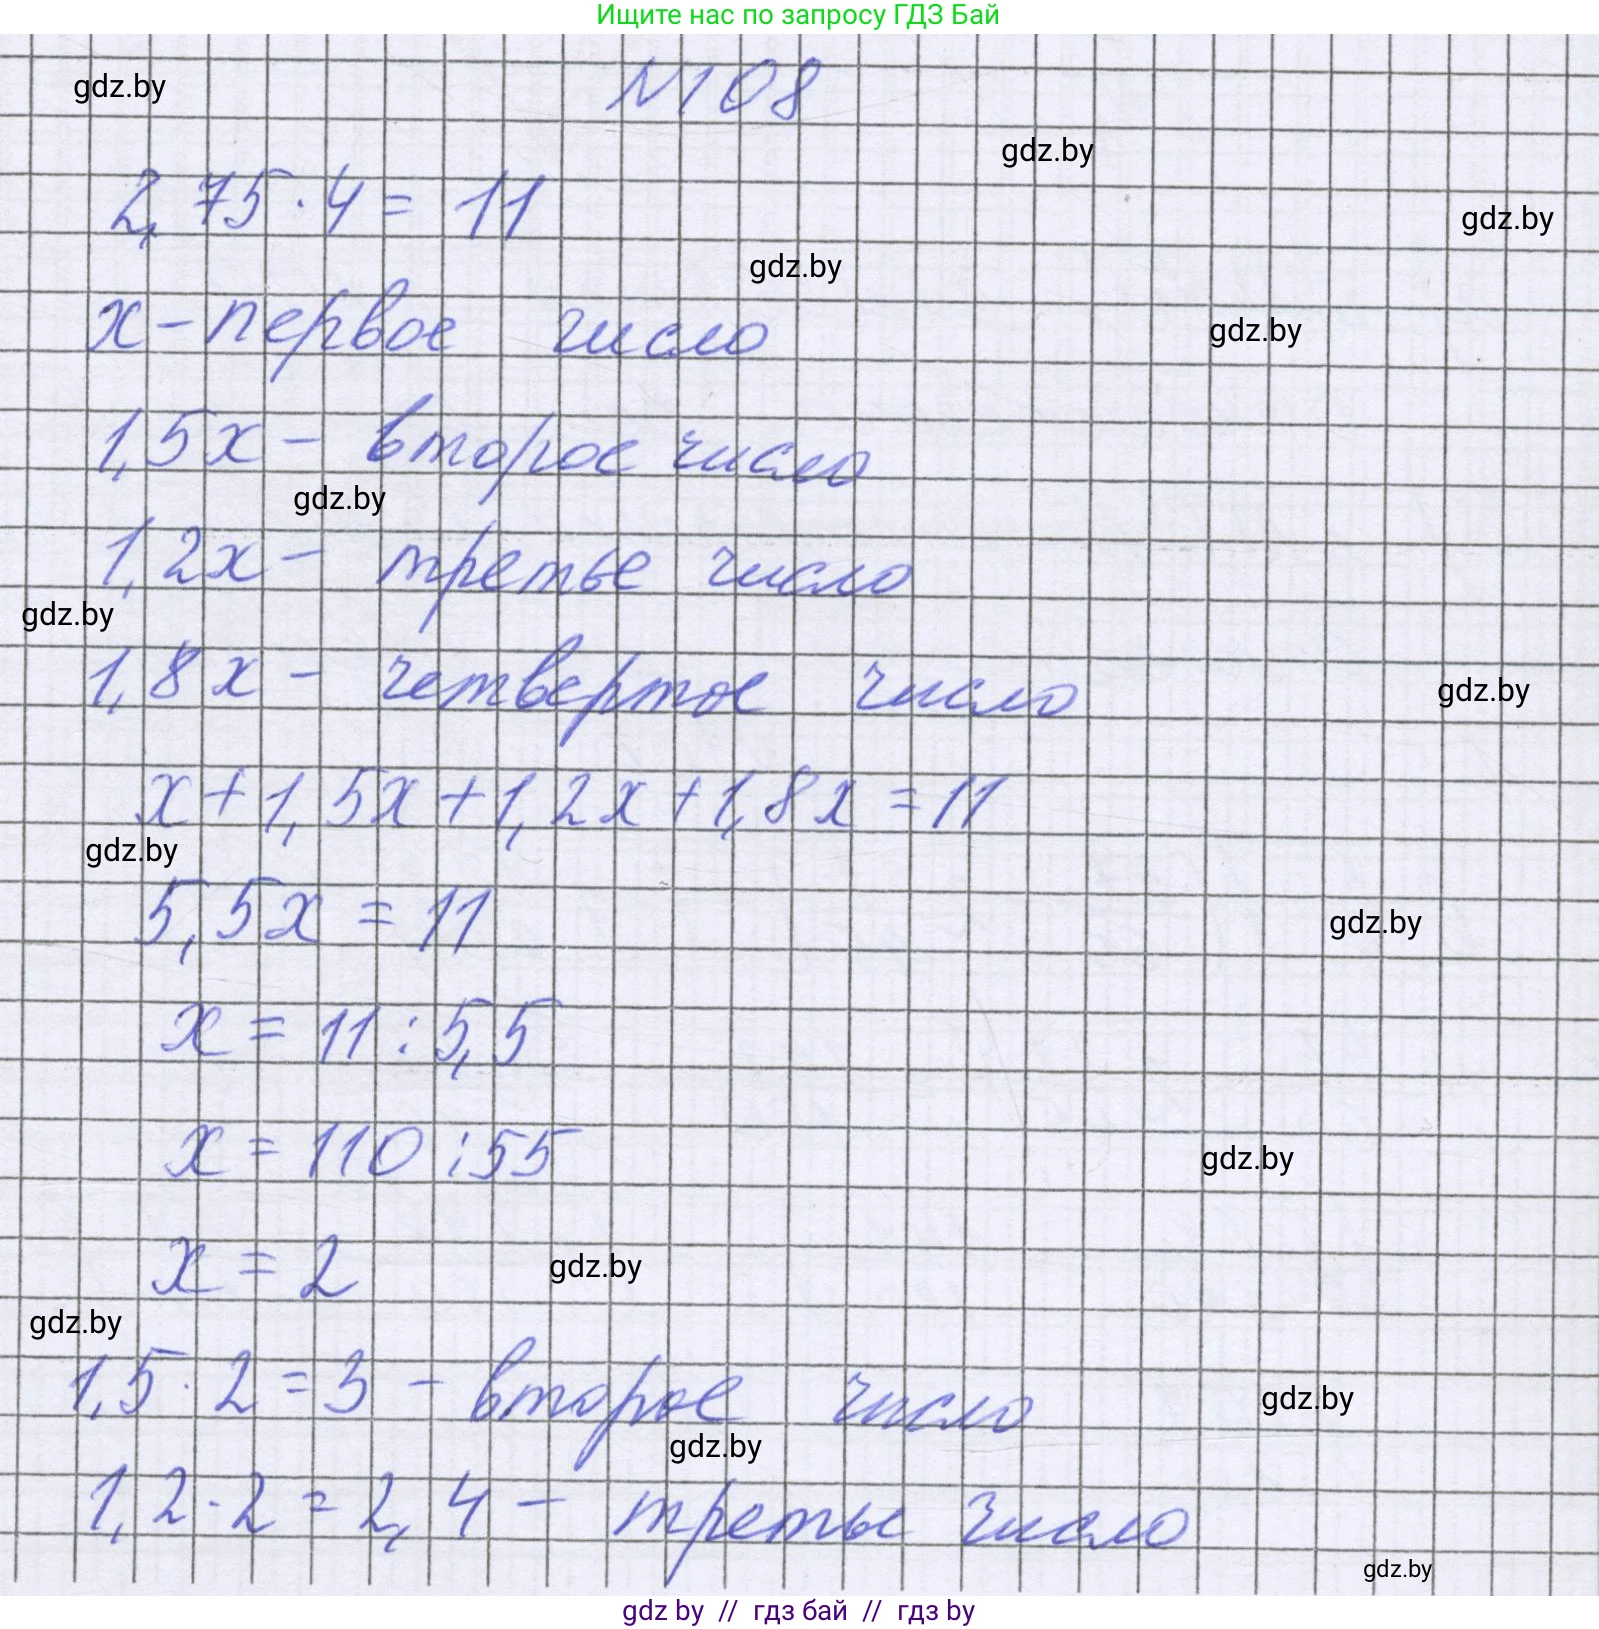 Ищите нас по запросу ГДЗ Бай
N108
gdz.by
gdz.by
2,75·4=11
gdz.by
gdz.by
x-первое число
gdz.by
1,5x- второе число
gdz.by
1,2x- третье число
gdz.by
1,8x- четвертое число
gdz.by
x+1,5x+1,2x+1,8x=11
gdz.by
5,5x=11
gdz.by
x=11:5,5
x=110:55
gdz.by
x=2
gdz.by
gdz.by
1,5·2=3- второе число
gdz.by
gdz.by
1,2·2=2,4- третье число
gdz.by
gdz by // гдз бай // гдз by